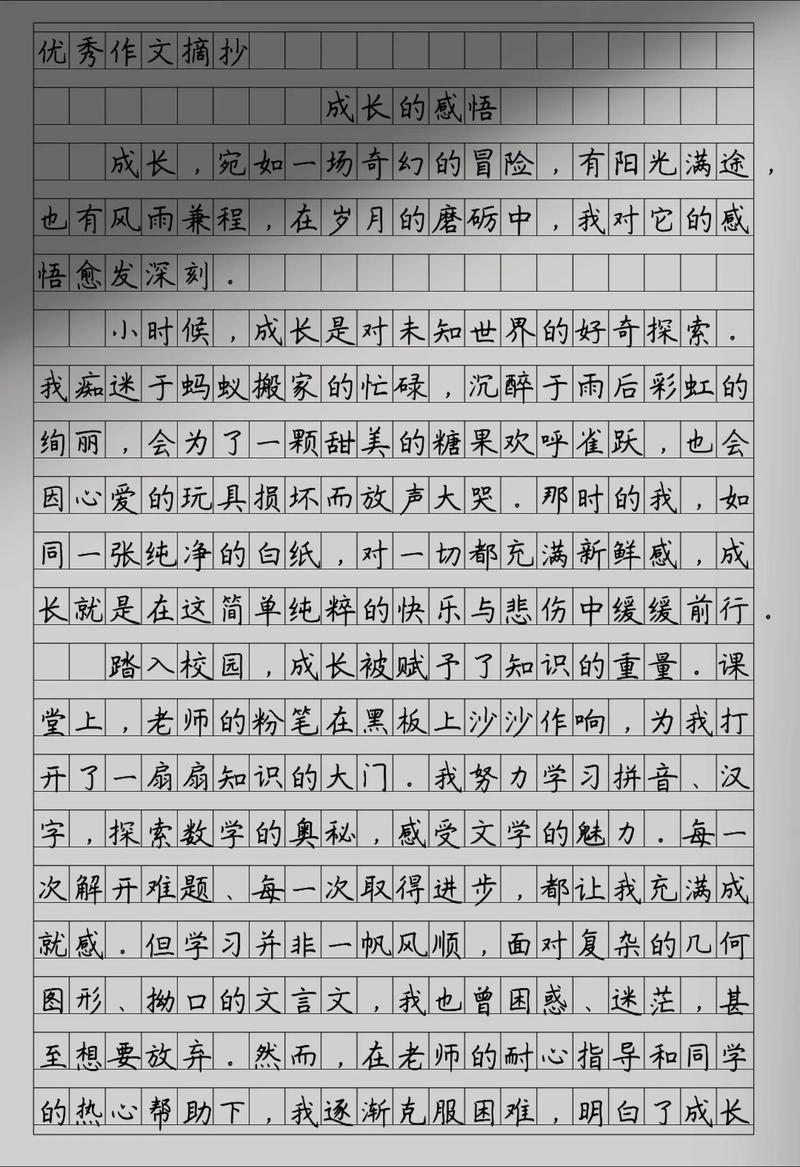 优秀作文摘抄
成长的感悟
成长，宛如一场奇幻的冒险，有阳光满途，
也有风雨兼程，在岁月的磨砺中，我对它的感
悟愈发深刻。
小时候，成长是对未知世界的好奇探索。
我痴迷于蚂蚁搬家的忙碌，沉醉于雨后彩虹的
绚丽，会为了一颗甜美的糖果欢呼雀跃，也会
因心爱的玩具损坏而放声大哭。那时的我，如
同一张纯净的白纸，对一切都充满新鲜感，成
长就是在这简单纯粹的快乐与悲伤中缓缓前行。
踏入校园，成长被赋予了知识的重量。课
堂上，老师的粉笔在黑板上沙沙作响，为我打
开了一扇扇知识的大门。我努力学习拼音、汉
字，探索数学的奥秘，感受文学的魅力。每一
次解开难题、每一次取得进步，都让我充满成
就感。但学习并非一帆风顺，面对复杂的几何
图形、拗口的文言文，我也曾困惑、迷茫，甚
至想要放弃。然而，在老师的耐心指导和同学
的热心帮助下，我逐渐克服困难，明白了成长